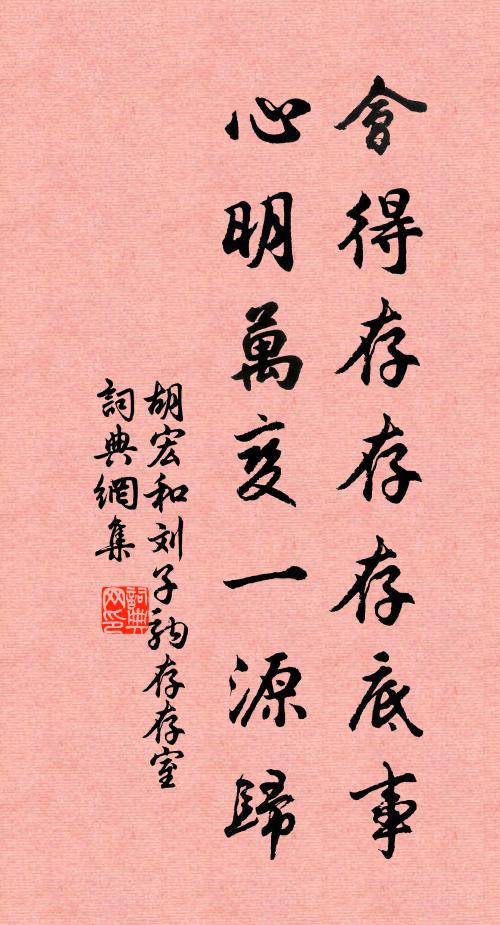 會得存存存底事
心明萬变一源歸
胡宏和刘子駒存存室
詞典網集
詞典网印